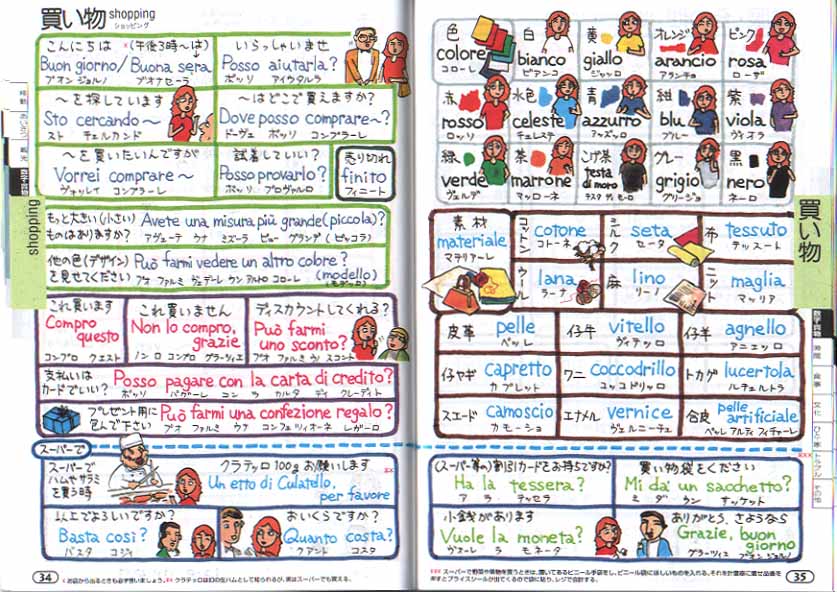 買い物 shopping
ショッピング
こんにちは ※(午後3時〜は)
Buon giorno/Buona sera
ブオン ジョルノ ブオナセーラ
いらっしゃいませ
Posso aiutarla?
ポッソ アイウタルラ
〜を探しています
Sto cercando〜
スト チェルカンド
〜はどこで買えますか?
Dove posso comprare〜?
ドーヴェ ポッソ コンプラーレ
〜を買いたいんですが
Vorrei comprare〜
ヴォッレイ コンプラーレ
試着していい?
Posso provarlo?
ポッソ プロヴァルロ
売り切れ
finito
フィニート
もっと大きい(小さい)
ものはありますか?
Avete una misura più grande(piccola)?
アヴェーテ ウナ ミズーラ ピュー グランデ (ピッコラ)
他の色(デザイン)
を見せてください
Può farmi vedere un altro colore?
(modello)
プオ ファルミ ヴェデーレ ウン アルトロ コローレ
(モデッロ)
これ買います
Compro
questo
コンプロ クエスト
これ買いません
Non lo compro,
grazie
ノン ロ コンプロ グラーツィエ
ディスカウントしてくれる?
Può farmi
uno sconto?
プオ ファルミ ウノ スコント
支払いは
カードでいい?
Posso pagare con la carta di credito?
ポッソ パガーレ コン ラ カルタ ディ クレーディト
プレゼント用に
包んで下さい
Può farmi una confezione regalo?
プオ ファルミ ウナ コンフェツィオーネ レガーロ
スーパーで
スーパーで
ハムやサラミ
を買う時
クラテッロ 100g お願いします
※※
Un etto di Culatello,
per favore
以上でよろしいですか?
Basta così?
バスタ コジィ
おいくらですか?
Quanto costa?
クアント コスタ
34
※お店から出るときも必ず言いましょう。※※クラテッロは幻の生ハムとして知られるが、実はスーパーでも買える。
shopping
色
colore
コローレ
白
bianco
ビアンコ
黄
giallo
ジャッロ
オレンジ
arancio
アランチョ
ピンク
rosa
ローザ
赤
rosso
ロッソ
水色
celeste
チェレステ
青
azzurro
アッズッロ
紺
blu
ブルー
紫
viola
ヴィオラ
緑
verde
ヴェルデ
茶
marrone
マッローネ
こげ茶
testa
di moro
テスタ ディ モーロ
グレー
grigio
グリージョ
黒
nero
ネーロ
素材
materiale
マテリアーレ
コットン
cotone
コトーネ
シルク
seta
セータ
布
tessuto
テッスート
ウール
lana
ラーナ
麻
lino
リーノ
ニット
maglia
マッリア
皮革
pelle
ペッレ
仔牛
vitello
ヴィテッロ
仔羊
agnello
アニェッロ
仔ヤギ
capretto
カプレット
ワニ
coccodrillo
コッコドリッロ
トカゲ
lucertola
ルチェルトラ
スエード
camoscio
カモーショ
エナメル
vernice
ヴェルニーチェ
合皮
pelle
artificiale
ペッレ アルティフィチャーレ
※※※
(スーパー等の)割引カードをお持ちですか?
Ha la tessera?
ア ラ テッセラ
買い物袋をください
Mi da' un sacchetto?
ミ ダ ウン サッケット
小銭があります
Vuole la moneta?
ヴオーレ ラ モネータ
ありがとう、さようなら
Grazie, buon
giorno
グラーツィエ ブオン ジョルノ
※※※スーパーで野菜や果物を買うときは、置いてあるビニール手袋をし、ビニール袋にほしいものを入れる。それを計量器に載せ品番を
押すとプライスシールが出てくるので袋に貼り、レジで会計する。
35
買い物
数字・買物
時間
食事
文化
トラブル
その他